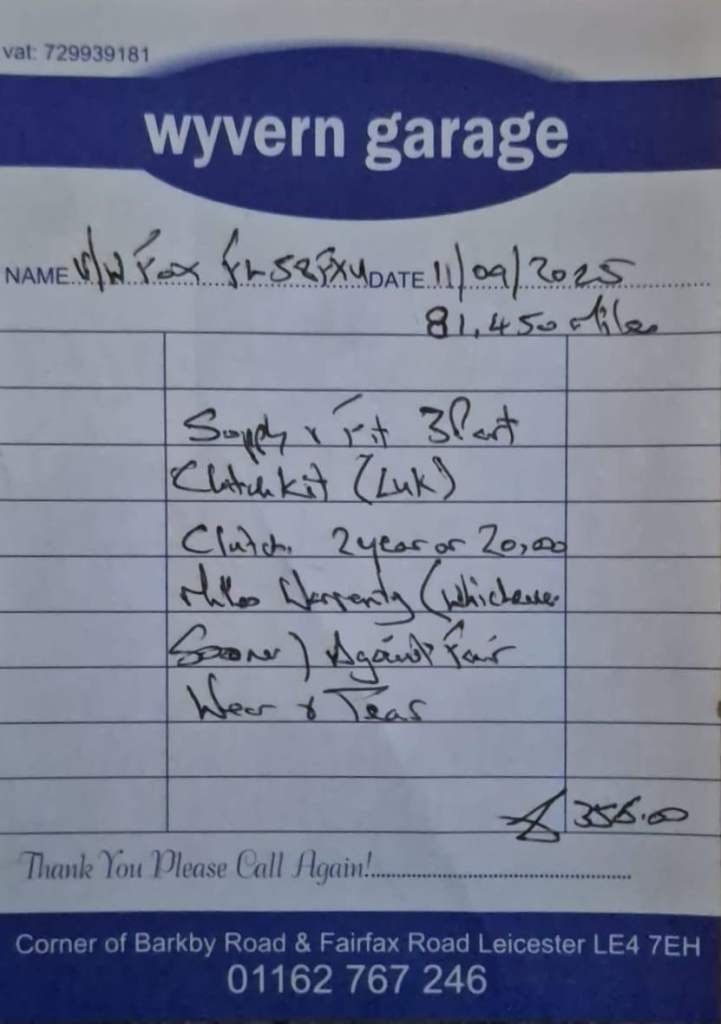 vat: 729939181
wyvern garage
NAME V/W Fox DATE 11/09/2025
81,450 Miles
Supply & Fit 3 Part
Clutch Kit (Luk)
Clutch. 2 year or 20,000
Miles Warrenty (Whichever
Sooner) Against Fair
Wear & Tear
£ 356.00
Thank You Please Call Again!
Corner of Barkby Road & Fairfax Road Leicester LE4 7EH
01162 767 246